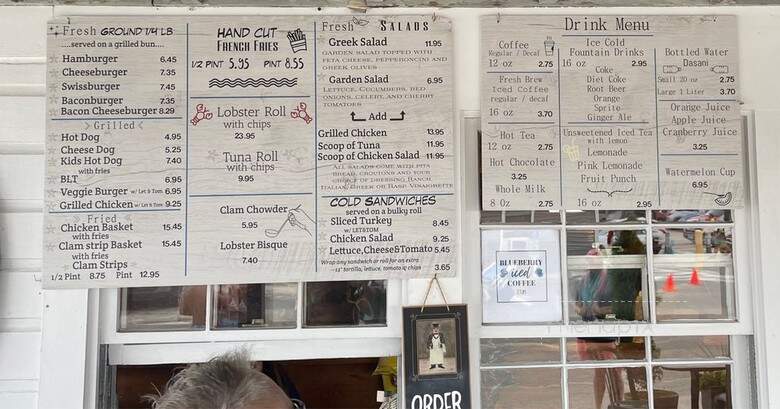 Fresh GROUND 1/4 LB
....served on a grilled bun....
Hamburger 6.45
Cheeseburger 7.35
Swissburger 7.45
Baconburger 7.35
Bacon Cheeseburger 8.29
Grilled
Hot Dog 4.95
Cheese Dog 5.25
Kids Hot Dog 7.40
with fries
BLT 6.95
Veggie Burger w/ Let & Tom 6.95
Grilled Chicken w/ Let & Tom 9.25
Fried
Chicken Basket 15.45
with fries
Clam strip Basket 15.45
with fries
Clam Strips
1/2 Pint 8.75 Pint 12.95
HAND CUT
FRENCH FRIES
1/2 PINT 5.95 PINT 8.55
Lobster Roll
with chips
23.95
Tuna Roll
with chips
9.95
Clam Chowder
5.95
Lobster Bisque
7.40
Fresh SALADS
Greek Salad 11.95
GARDEN SALAD TOPPED WITH
FETA CHEESE, PEPPERONCINI AND
GREEK OLIVES
Garden Salad 6.95
LETTUCE, CUCUMBERS, RED
ONIONS, CELERY, AND CHERRY
TOMATOES
Add
Grilled Chicken 13.95
Scoop of Tuna 11.95
Scoop of Chicken Salad 11.95
ALL SALADS COME WITH PITA
BREAD, CROUTONS AND YOUR
CHOICE OF DRESSING RANCH,
ITALIAN, GREEK OR RASP. VINAIGRETTE
COLD SANDWICHES
served on a bulky roll
Sliced Turkey 8.45
W/ LET&TOM
Chicken Salad 9.25
Lettuce,Cheese&Tomato 5.45
Wrap any sandwich or roll for an extra
~11" tortilla, lettuce, tomato & chips 3.65
Drink Menu
Coffee
Regular / Decaf
12 oz 2.75
Fresh Brew
Iced Coffee
regular / decaf
16 oz 3.70
Hot Tea
12 oz 2.75
Hot Chocolate
3.25
Whole Milk
8 Oz 2.75
Ice Cold
Fountain Drinks
16 oz 2.95
Coke
Diet Coke
Root Beer
Orange
Sprite
Ginger Ale
Unsweetened Iced Tea
with lemon
Lemonade
Pink Lemonade
Fruit Punch
16 oz 2.95
Bottled Water
Dasani
Small 20 oz 2.75
Large 1 Liter 3.70
Orange Juice
Apple Juice
Cranberry Juice
3.25
Watermelon Cup
6.95
BLUEBERRY
iced
COFFEE
ORDER